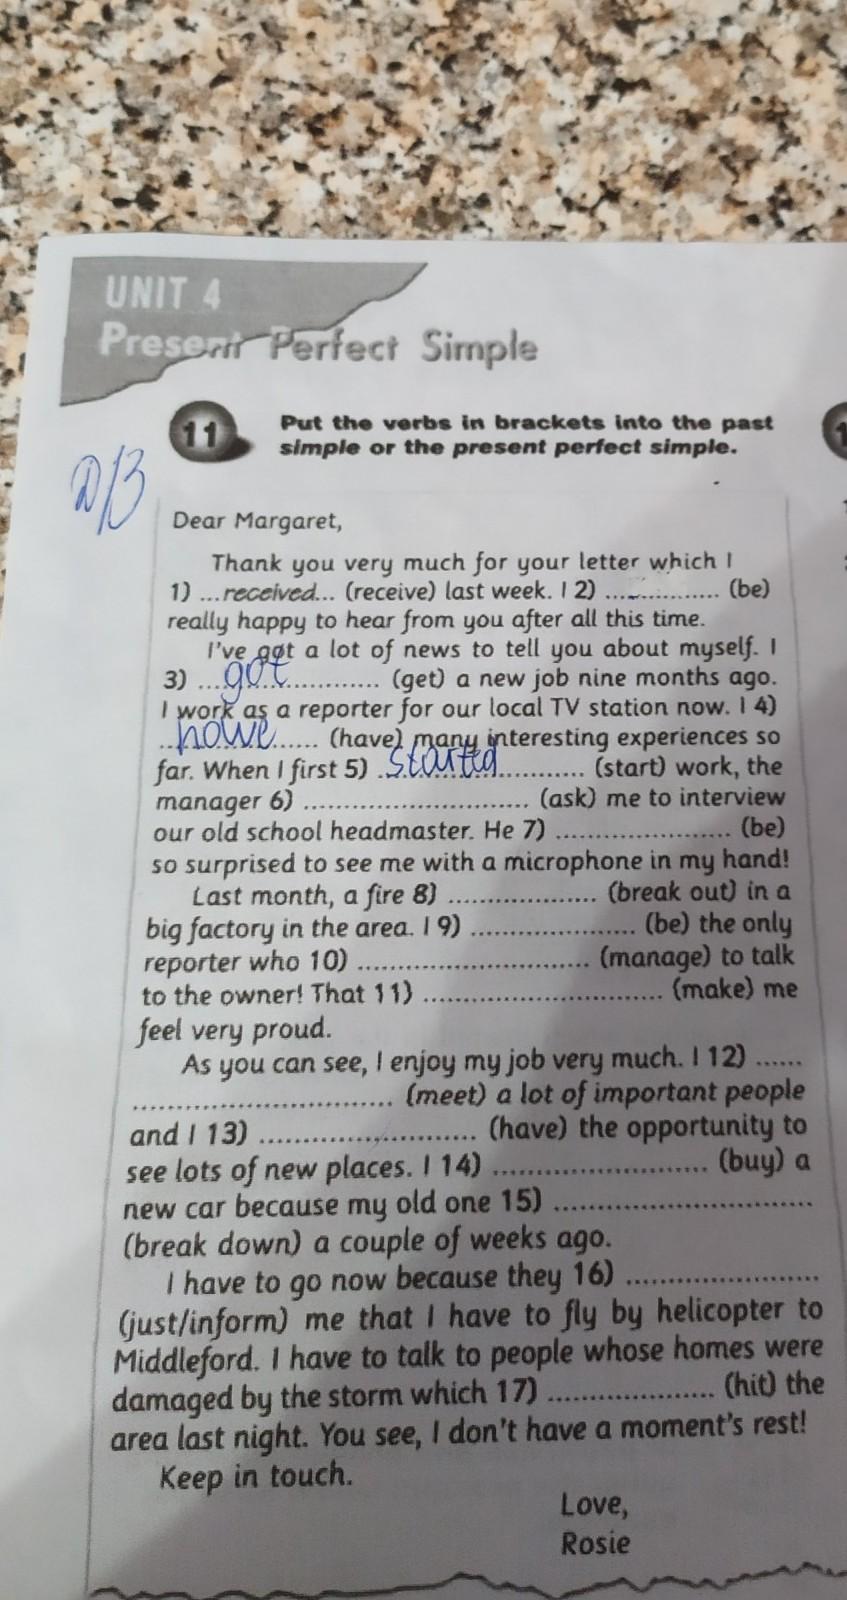 UNIT 4
Present Perfect Simple
11 Put the verbs in brackets into the past
simple or the present perfect simple.
Д/З
Dear Margaret,
Thank you very much for your letter which I
1) ...received... (receive) last week. I 2) .................. (be)
really happy to hear from you after all this time.
I've got a lot of news to tell you about myself. I
3) ....got.................. (get) a new job nine months ago.
I work as a reporter for our local TV station now. I 4)
..howe...... (have) many interesting experiences so
far. When I first 5) .started.............. (start) work, the
manager 6) .............................. (ask) me to interview
our old school headmaster. He 7) ....................... (be)
so surprised to see me with a microphone in my hand!
Last month, a fire 8) ................... (break out) in a
big factory in the area. I 9) ..................... (be) the only
reporter who 10) .............................. (manage) to talk
to the owner! That 11) .............................. (make) me
feel very proud.
As you can see, I enjoy my job very much. I 12) ......
.................................. (meet) a lot of important people
and I 13) ............................ (have) the opportunity to
see lots of new places. I 14) ............................ (buy) a
new car because my old one 15) .................................
(break down) a couple of weeks ago.
I have to go now because they 16) ........................
(just/inform) me that I have to fly by helicopter to
Middleford. I have to talk to people whose homes were
damaged by the storm which 17) ..................... (hit) the
area last night. You see, I don't have a moment's rest!
Keep in touch.
Love,
Rosie